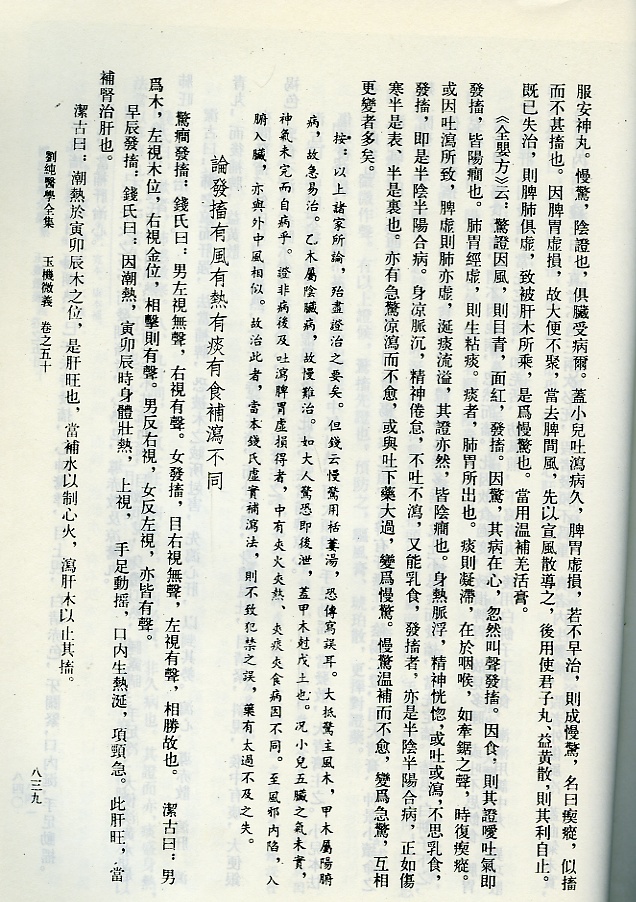 服安神丸。慢驚，陰證也，俱臟受病爾。蓋小兒吐瀉病久，脾胃虛損，若不早治，則成慢驚，名曰瘈瘲，似搐
而不甚搐也。因脾胃虛損，故大便不聚，當去脾間風，先以宣風散導之，後用使君子丸、益黃散，則其利自止。
既已失治，則脾肺俱虛，致被肝木所乘，是爲慢驚也。當用溫補羌活膏。
《全嬰方》云：驚證因風，則目青，面紅，發搐。因驚，其病在心，忽然叫聲發搐。因食，則其證噯吐氣即
發搐，皆陽癎也。肺胃經虛，則生粘痰。痰者，肺胃所出也。痰則凝滯，在於咽喉，如牽鋸之聲，時復瘈瘲。
或因吐瀉所致，脾虛則肺亦虛，涎痰流溢，其證亦然，皆陰癎也。身熱脈浮，精神恍惚，或吐或瀉，不思乳食，
發搐，即是半陰半陽合病。身凉脈沉，精神倦怠，不吐不瀉，又能乳食，發搐者，亦是半陰半陽合病，正如傷
寒半是表、半是裏也。亦有急驚凉瀉而不愈，或與吐下藥大過，變爲慢驚。慢驚溫補而不愈，變爲急驚，互相
更變者多矣。
按：以上諸家所論，殆盡證治之要矣。但錢云慢驚用栝蔞湯，恐傳寫誤耳。大抵驚主風木，甲木屬陽腑
病，故急易治。乙木屬陰臟病，故慢難治。如大人驚恐即後泄，蓋甲木尅戊土也。況小兒五臟之氣未實，
神氣未完而自病乎。證非病後及吐瀉脾胃虛損得者，中有夾火夾熱、夾痰夾食病因不同。至風邪內陷，入
腑入臟，亦與外中風相似。故治此者，當本錢氏虛實補瀉法，則不致犯禁之誤，藥有太過不及之失。
論發搐有風有熱有痰有食補瀉不同
驚癎發搐：錢氏曰：男左視無聲，右視有聲。女發搐，目右視無聲，左視有聲，相勝故也。 潔古曰：男
爲木，左視木位，右視金位，相擊則有聲。男反右視，女反左視，亦皆有聲。
早辰發搐：錢氏曰：因潮熱，寅卯辰時身體壯熱，上視， 手足動搖，口內生熱涎，項頸急。此肝旺，當
補腎治肝也。
潔古曰：潮熱於寅卯辰木之位，是肝旺也，當補水以制心火，瀉肝木以止其搐。
劉純醫學全集 玉機微義 卷之五十
八三九